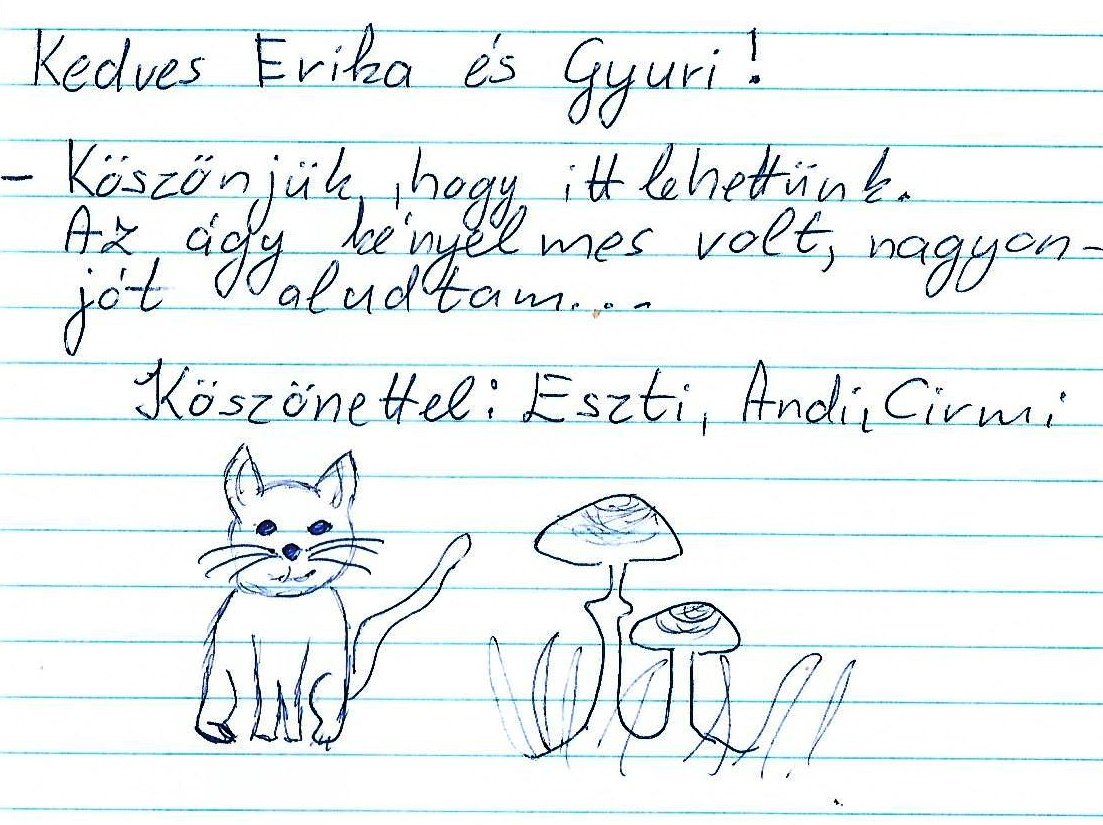 Kedves Erika és Gyuri!
- Köszönjük, hogy itt lehettünk.
Az ágy kényelmes volt, nagyon-
jót aludtam...
Köszönettel: Eszti, Andi, Cirmi